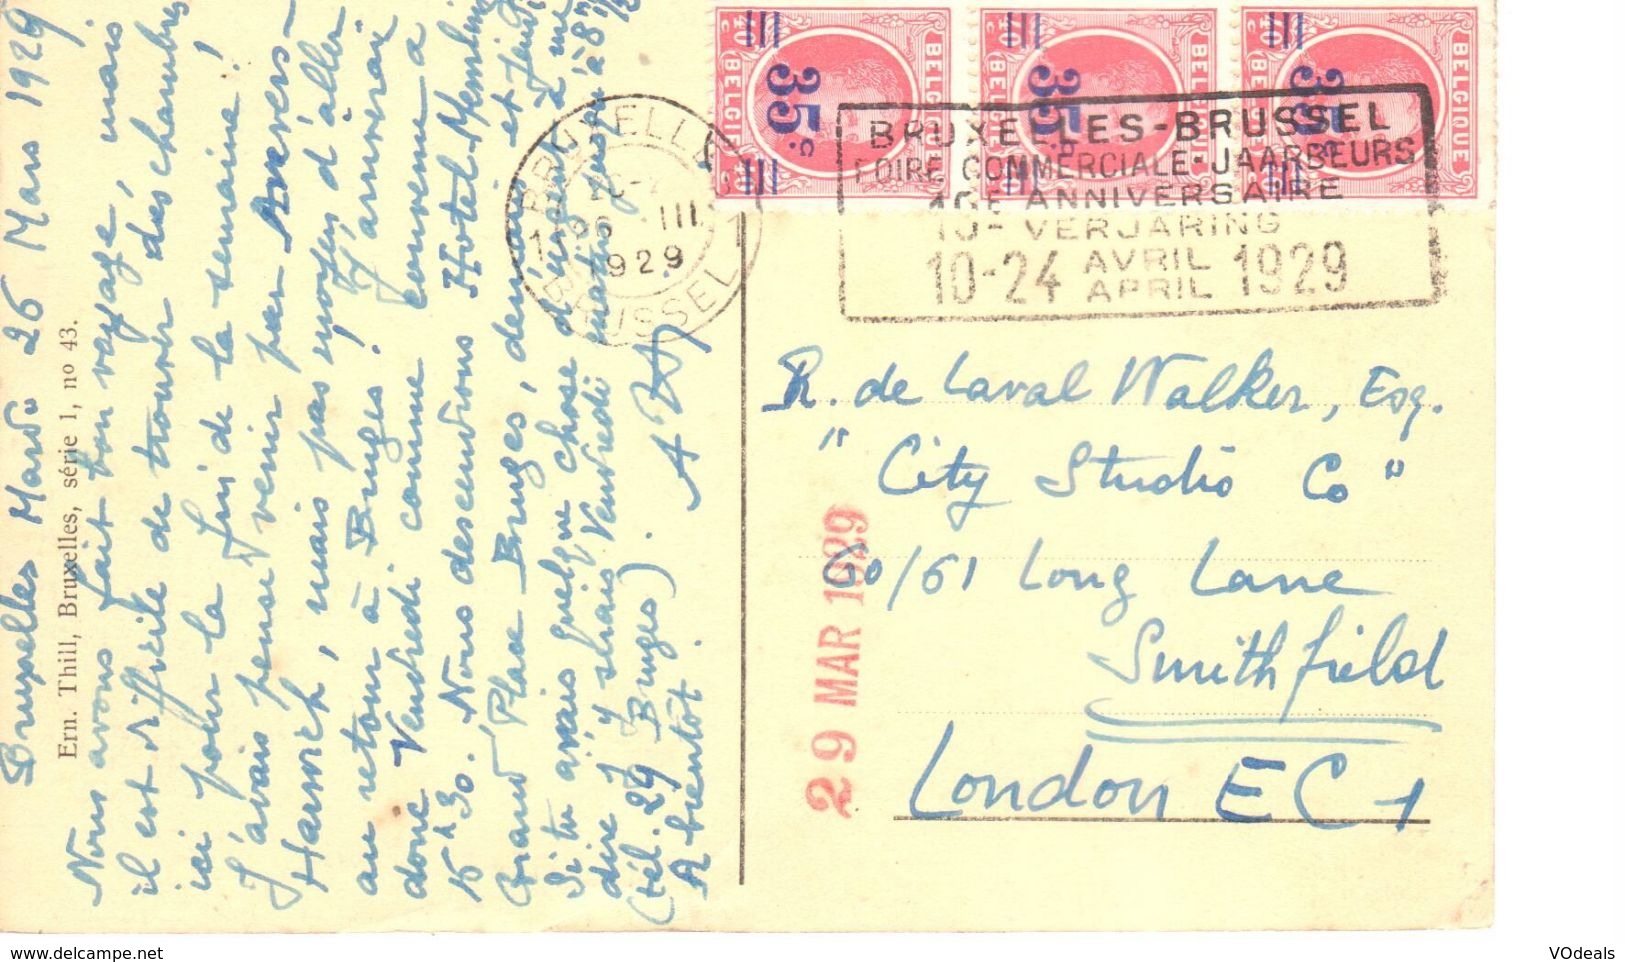 Bruxelles Mardi 26 Mars 1929
Nous avons fait bon voyage, mais
il est difficile de trouver des chambres
ici pour la fin de la semaine !
J'avais pensé venir par Anvers-
Harwich, mais pas moyen d'aller
au retour à Bruges ! J'arriverai
donc Vendredi comme convenu à
15h30. Nous descendrons Hotel Memling
Grand Place Bruges, demain et Jeudi
Si tu avais quelque chose d'urgent à me
dire j'y serais Vendredi matin jusqu'à 8h1/2
(tél. 29 Bruges).
A bientôt.
Ern. Thill, Bruxelles, série 1, no 43.
BRUXELLES
26 III
1929
BRUSSEL
40 c BELGIQUE 35 c. BELGIQUE 40 c
40 c BELGIQUE 35 c. BELGIQUE
40 c BELGIQUE 35 c. BELGIQUE
BRUXELLES-BRUSSEL
FOIRE COMMERCIALE-JAARBEURS
10E ANNIVERSAIRE
10E VERJARING
10-24 AVRIL APRIL 1929
R. de Laval Walker, Esq.
"City Studio Co"
60/61 Long Lane
Smithfield
London EC1
29 MAR 1929
www.delcampe.net
VOdeals